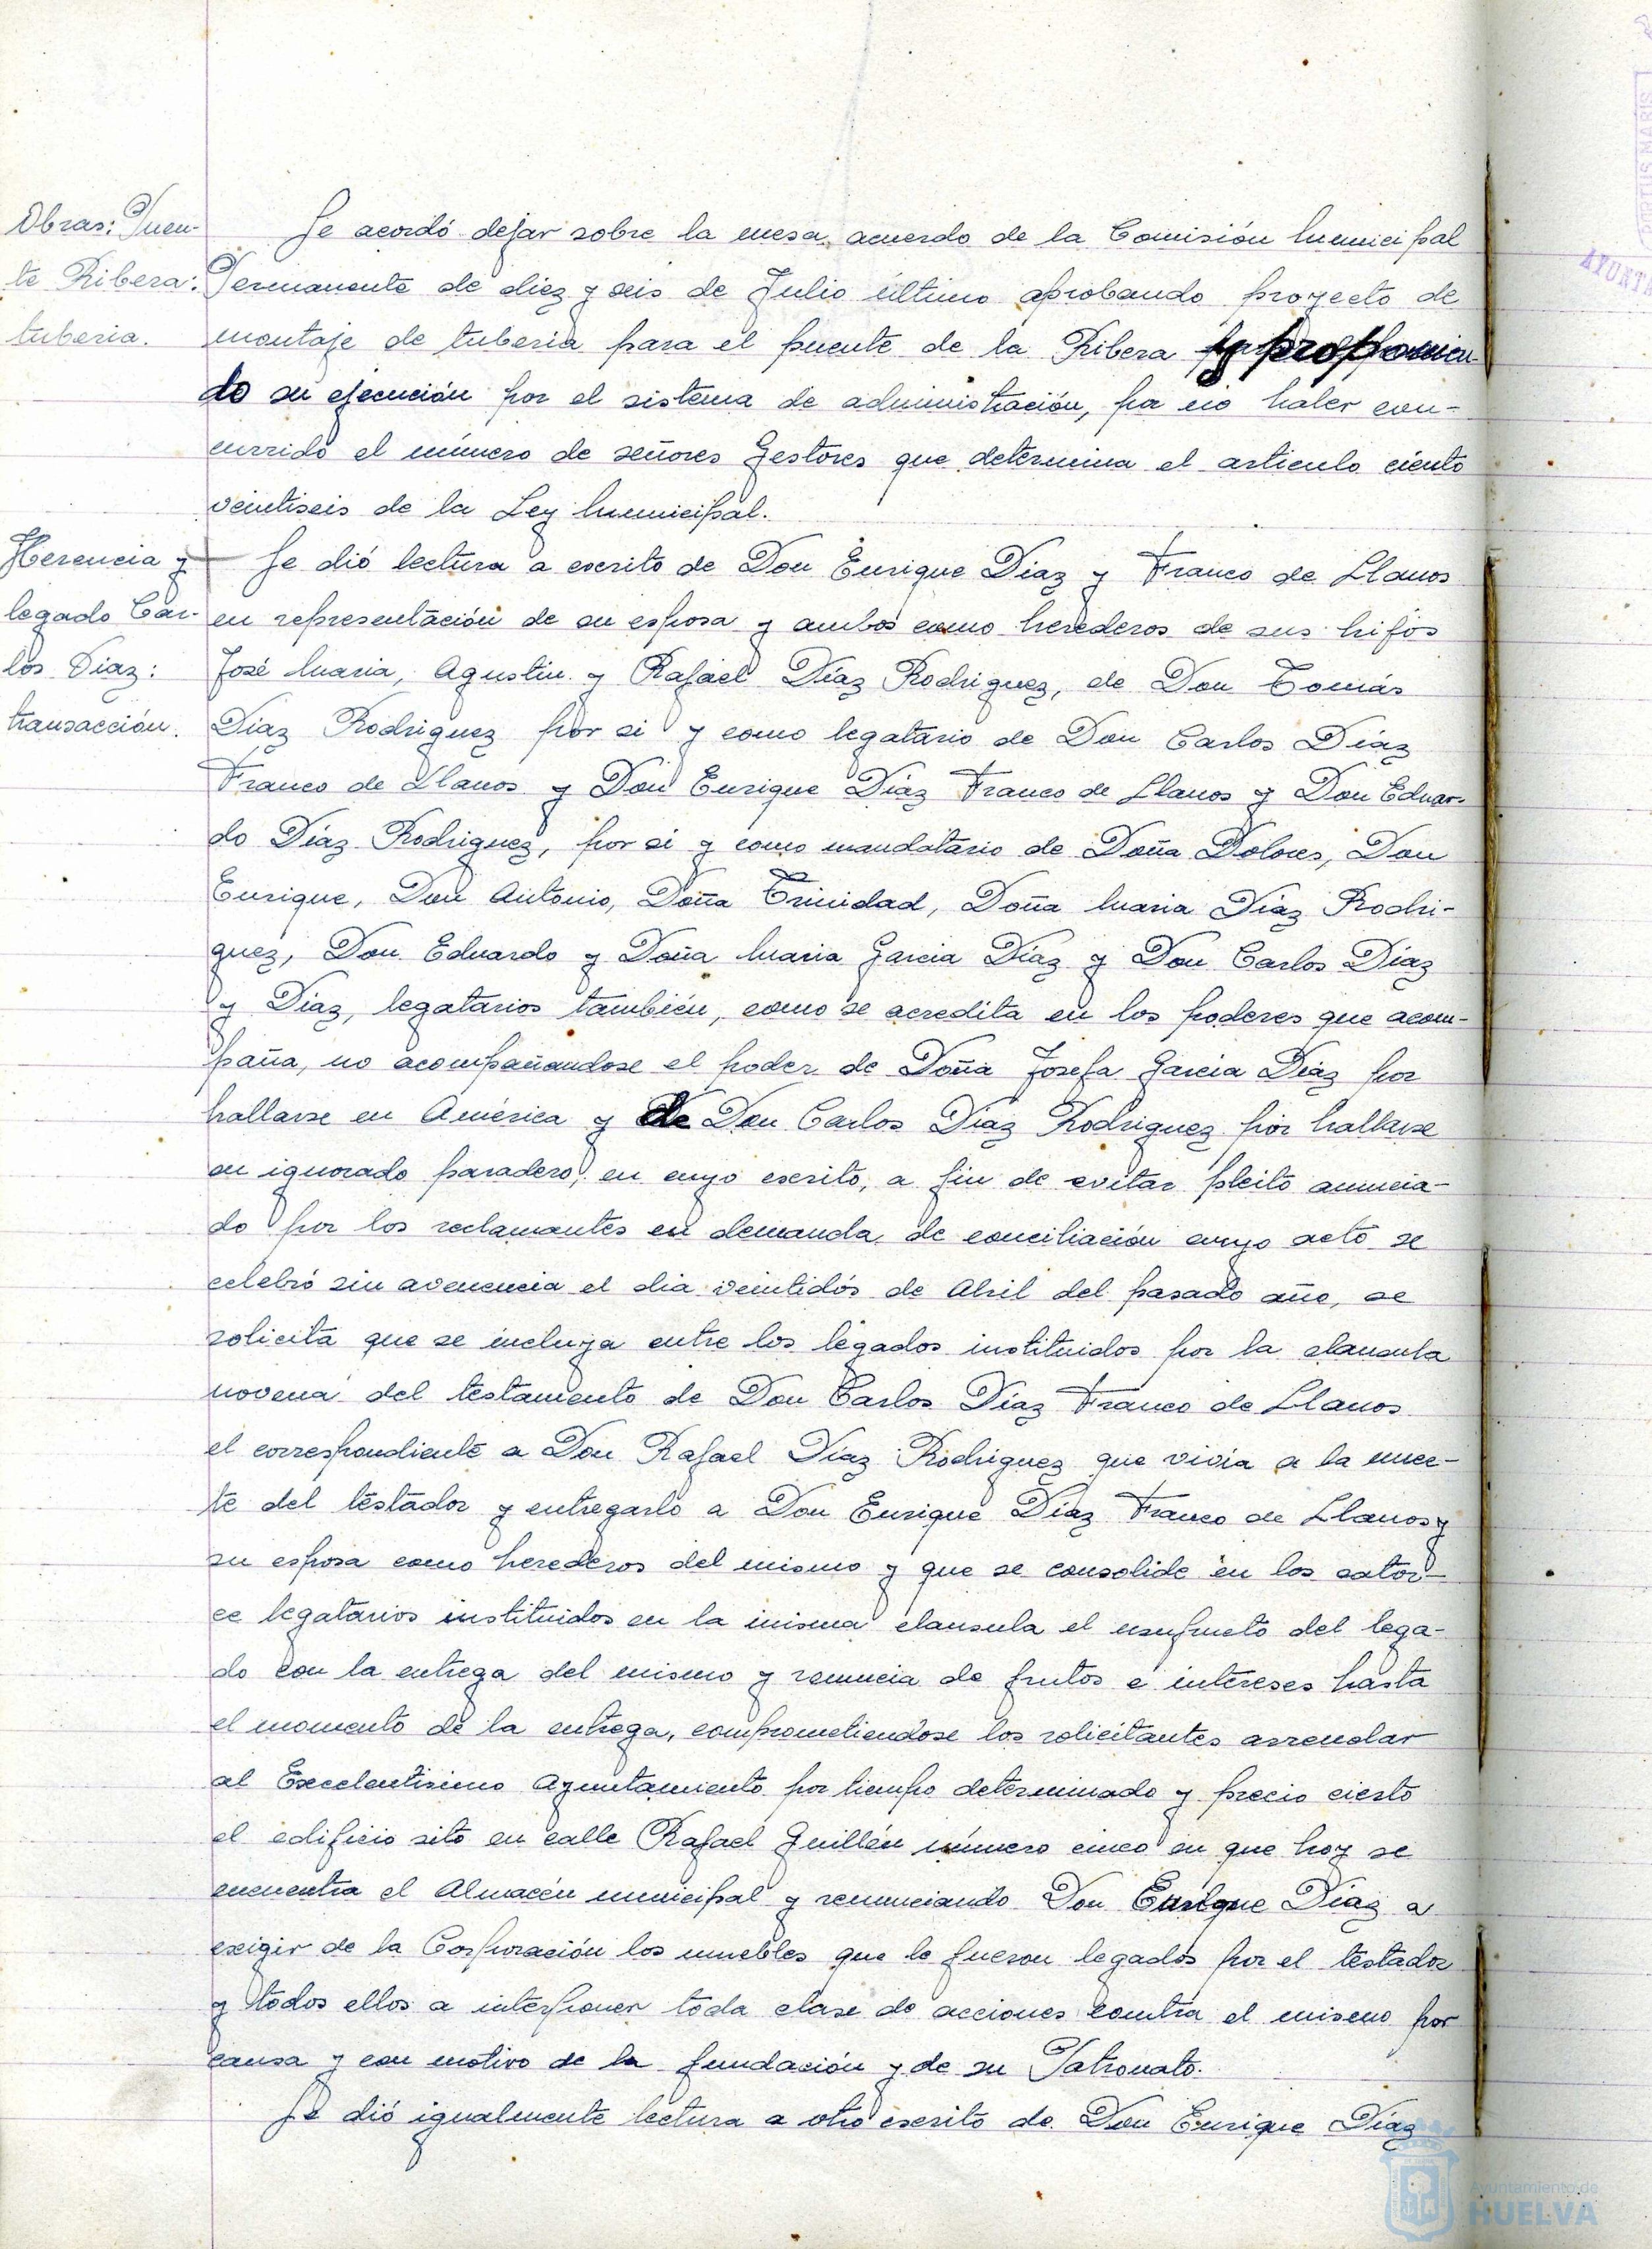 Obras: Puen-
te Ribera:
tuberia.
Se acordó dejar sobre la mesa acuerdo de la Comisión Municipal
Permanente de diez y seis de Julio último aprobando proyecto de
montaje de tuberia para el puente de la Ribera y proponien-
do su ejecución por el sistema de administración, por no haber con-
currido el número de señores Gestores que determina el articulo ciento
veintiseis de la Ley Municipal.
Herencia y
legado Car-
los Diaz:
transacción.
Se dió lectura a escrito de Don Enrique Díaz y Franco de Llanos
en representación de su esposa y ambos como herederos de sus hijos
José Maria, Agustin y Rafael Díaz Rodriguez, de Don Tomás
Diaz Rodriguez por si y como legatario de Don Carlos Díaz
Franco de Llanos y Don Enrique Díaz Franco de Llanos y Don Eduar-
do Díaz Rodriguez, por si y como mandatario de Doña Dolores, Don
Enrique, Don Antonio, Doña Trinidad, Doña Maria Díaz Rodri-
guez, Don Eduardo y Doña Maria Garcia Díaz y Don Carlos Díaz
y Diaz, legatarios también, como se acredita en los poderes que acom-
paña, no acompañandose el poder de Doña Josefa Garcia Díaz por
hallarse en América y de Don Carlos Díaz Rodriguez por hallarse
en ignorado paradero, en cuyo escrito, a fin de evitar pleito anuncia-
do por los reclamantes en demanda de conciliación cuyo acto se
celebró sin avenencia el dia veintidós de Abril del pasado año, se
solicita que se incluya entre los legados instituidos por la clausula
novena del testamento de Don Carlos Díaz Franco de Llanos
el correspondiente a Don Rafael Díaz Rodriguez que vivia a la muer-
te del testador y entregarlo a Don Enrique Díaz Franco de Llanos y
su esposa como herederos del mismo y que se consolide en los cator-
ce legatarios instituidos en la misma clausula el usufructo del lega-
do con la entrega del mismo y renuncia de frutos e intereses hasta
el momento de la entrega, comprometiendose los solicitantes arrendar
al Excelentisimo Ayuntamiento por tiempo determinado y precio cierto
el edificio sito en calle Rafael Guillén número cinco en que hoy se
encuentra el Almacén municipal y renunciando Don Enrique Díaz a
exigir de la Corporación los muebles que le fueron legados por el testador
y todos ellos a interponer toda clase de acciones contra el mismo por
causa y con motivo de la fundación y de su Patronato.
Se dió igualmente lectura a otro escrito de Don Enrique Díaz
Ayuntamiento de
HUELVA